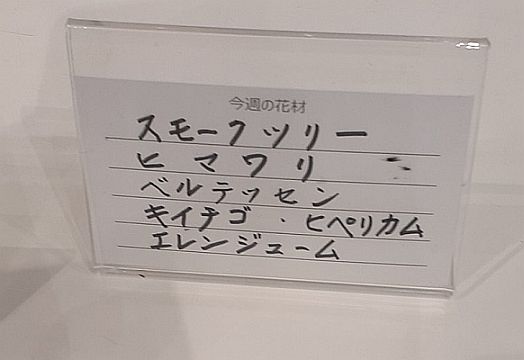 今週の花材
スモークツリー
ヒマワリ
ベルテッセン
キイチゴ・ヒペリカム
エレンジューム